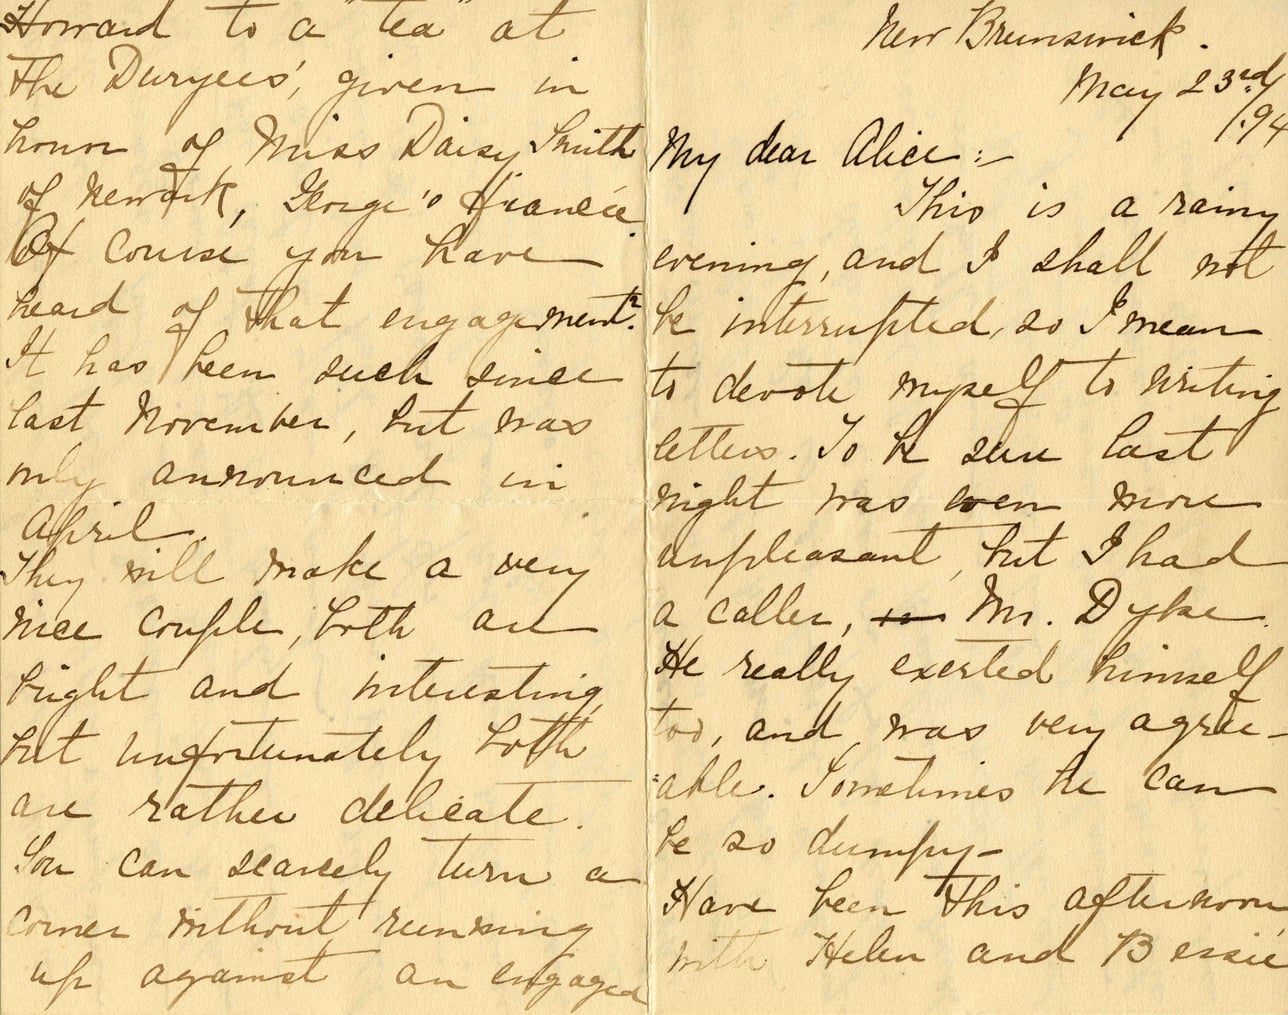 New Brunswick.
May 23rd/.94
My dear Alice:-
This is a rainy
evening, and I shall not
be interrupted, so I mean
to devote myself to writing
letters. To be sure last
night was even more
unpleasant, but I had
a caller, Mr. Dyke.
He really exerted himself
too, and was very agree-
able. Sometimes he can
be so dumpy-
Have been this afternoon
with Helen and Bessie
Howard to a "tea" at
the Duryees', given in
honor of Miss Daisy Smith
of Newark, George's fiancée.
Of course you have
heard of that engagement?
It has been such since
last November, but was
only announced in
April.
They will make a very
nice couple, both are
bright and interesting,
but unfortunately both
are rather delicate.
You can scarcely turn a
corner without running
up against an engaged